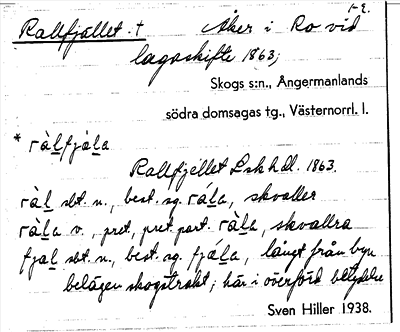 1-2.
Rallfjället. † Åker i Ro vid
lagaskifte 1863;
Skogs s:n., Ångermanlands
södra domsagas tg., Västernorrl. l.
* ràlfjàla
Rallfjellet Lskhdl. 1863.
ràl sbt. n., best. sg. ràla, skvaller
ràla v., pret., pret. part. ràla, skvallra
fjal sbt. n., best. sg. fjála, långt från byn
belägen skogstrakt; här i överförd betydelse
Sven Hiller 1938.